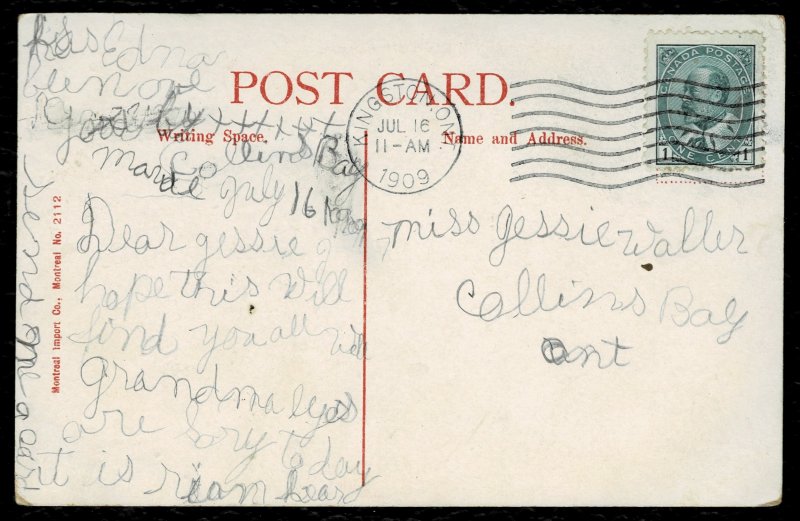 has Edna
been over
POST CARD.
good by x x x x x x
Writing Space.
Name and Address.
KINGSTON, ONT.
JUL 16
11-AM
1909
CANADA POSTAGE
1 ONE CENT 1
Collins Bay
July 16 1909
Dear Jessie I
hope this will
find you all well
grandma eyes
are sory to day
it is hard
send me a card
miss Jessie Waller
Collins Bay
ont
Montreal Import Co., Montreal No. 2112